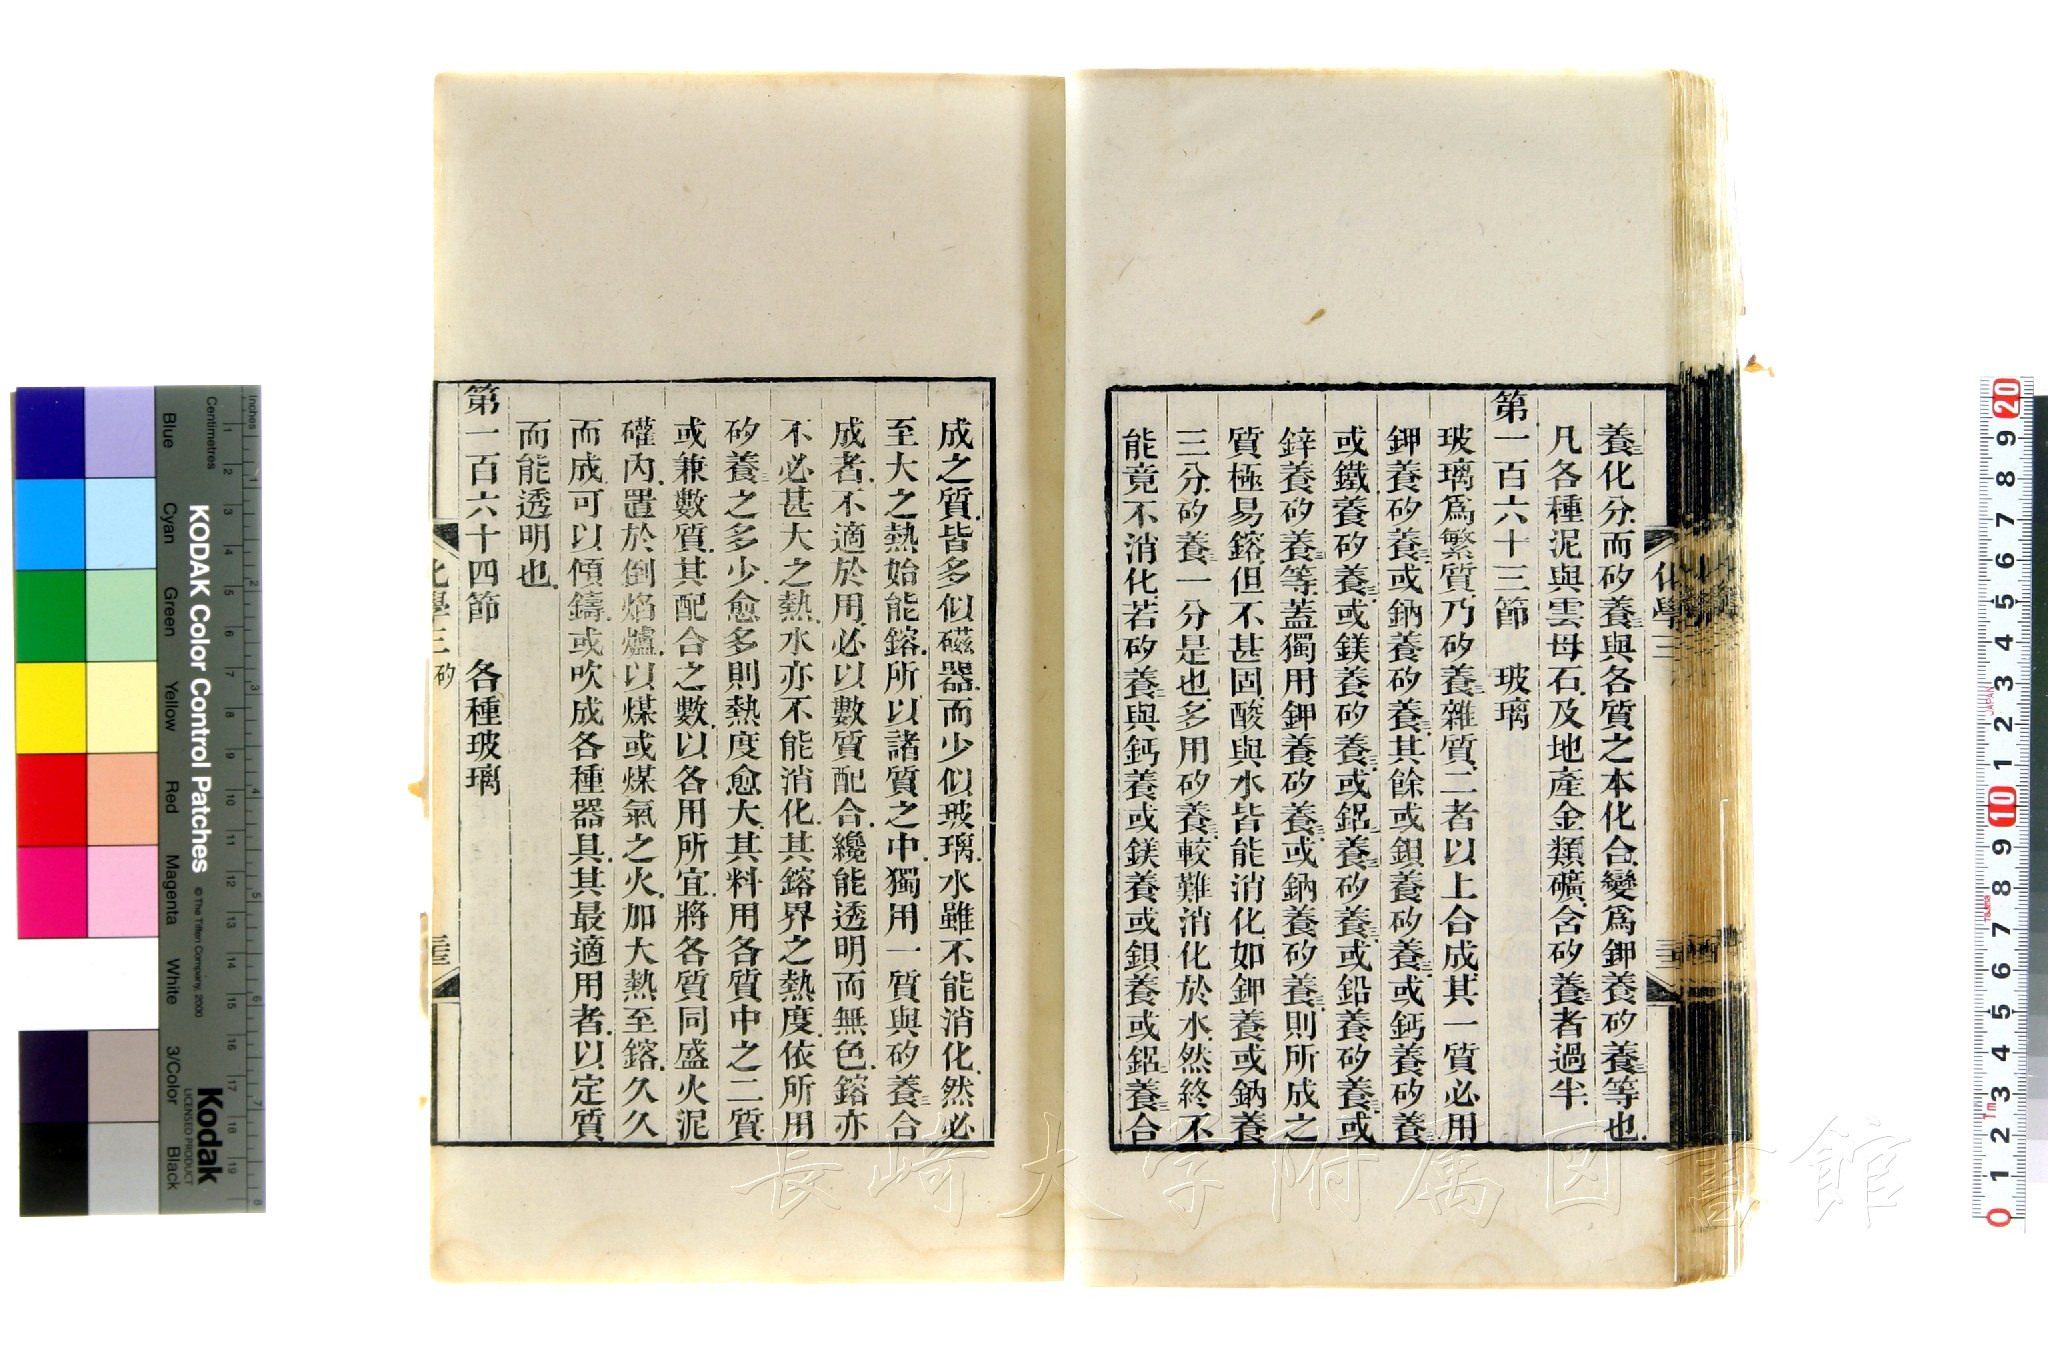 養三化分而矽養三與各質之本化合變爲鉀養矽養三等也
凡各種泥與雲母石及地產金類礦含矽養三者過半
第一百六十三節 玻璃
玻璃爲繁質乃矽養三雜質二者以上合成其一質必用
鉀養矽養三或鈉養矽養三其餘或鋇養矽養三或鈣養矽養三
或鐵養矽養三或鎂養矽養三或鋁養三矽養三或鉛養矽養三或
鋅養矽養三等蓋獨用鉀養矽養三或鈉養矽養三則所成之
質極易鎔但不甚固酸與水皆能消化如鉀養或鈉養
三分矽養三一分是也多用矽養三較難消化於水然終不
能竟不消化若矽養三與鈣養或鎂養或鋇養或鋁養三合
化學三
成之質皆多似磁器而少似玻璃水雖不能消化然必
至大之熱始能鎔所以諸質之中獨用一質與矽養三合
成者不適於用必以數質配合纔能透明而無色鎔亦
不必甚大之熱水亦不能消化其鎔界之熱度依所用
矽養三之多少愈多則熱度愈大其料用各質中之二質
或兼數質其配合之數以各用所宜將各質同盛火泥
礶內置於倒焰爐以煤或煤氣之火加大熱至鎔久久
而成可以傾鑄或吹成各種器具其最適用者以定質
而能透明也
第一百六十四節 各種玻璃
化學三 矽
KODAK Color Control Patches
© The Tiffen Company, 2000
Kodak
LICENSED PRODUCT
Inches
Centimetres
Blue
Cyan
Green
Yellow
Red
Magenta
White
3/Color
Black
1 2 3 4 5 6 7 8 9 10 11 12 13 14 15 16 17 18 19
20 9 8 7 6 5 4 3 2 1 10 9 8 7 6 5 4 3 2 1 0
JAPAN
長崎大学附属図書館